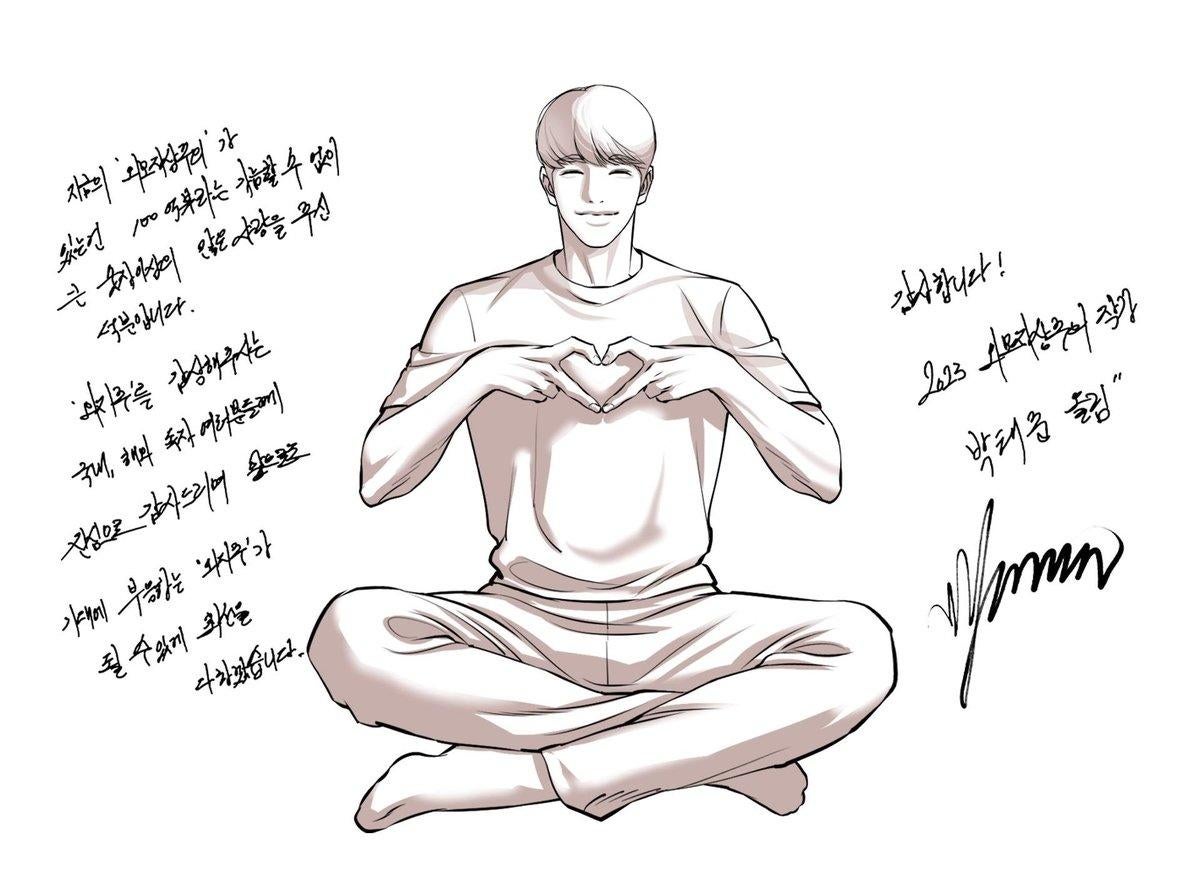 지금의 '외모지상주의'가
있는건 100억뷰라는 가능할 수 없이
큰 숫자이상의 많은 사랑을 주신
덕분입니다.
'외지주'를 감상해주시는
국내, 해외 독자 여러분들께
진심으로 감사드리며
기대에 부응하는 '외지주'가
될 수 있게 최선을
다하겠습니다.
감사합니다!
2023 외모지상주의 작가
박태준 올림"